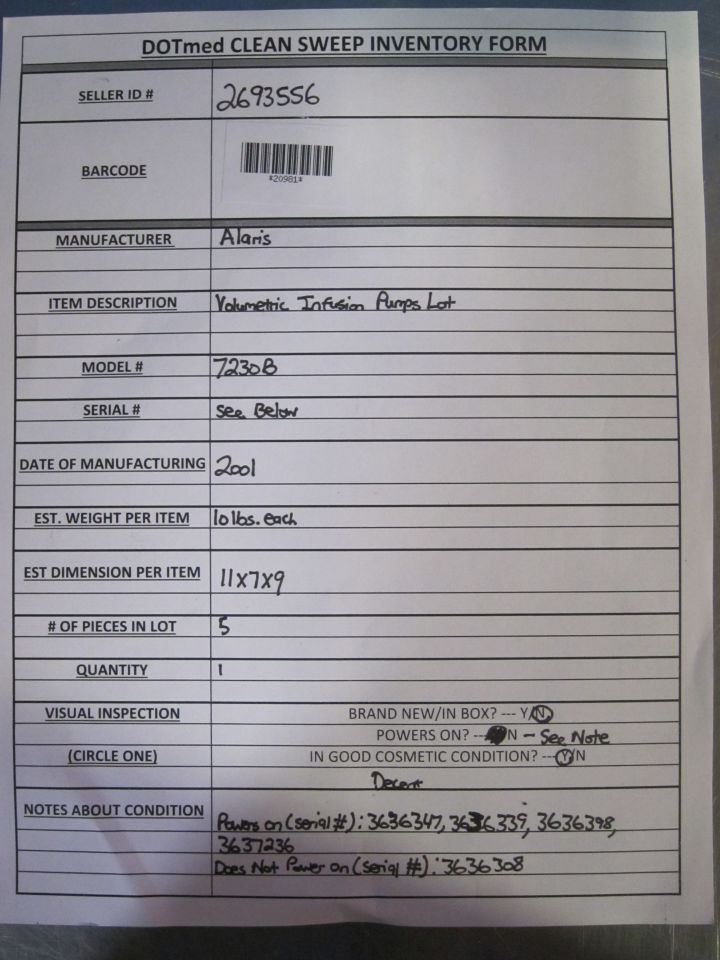 DOTmed CLEAN SWEEP INVENTORY FORM
SELLER ID # 2693556
BARCODE
*20981*
MANUFACTURER Alaris
ITEM DESCRIPTION Volumetric Infusion Pumps Lot
MODEL # 7230B
SERIAL # See Below
DATE OF MANUFACTURING 2001
EST. WEIGHT PER ITEM 10 lbs. each
EST DIMENSION PER ITEM 11x7x9
# OF PIECES IN LOT 5
QUANTITY 1
VISUAL INSPECTION BRAND NEW/IN BOX? --- Y/N
POWERS ON? --- N - See Note
(CIRCLE ONE) IN GOOD COSMETIC CONDITION? --- Y/N
Decent
NOTES ABOUT CONDITION Powers on (serial #): 3636347, 3636339, 3636398,
3637236
Does Not Power on (serial #): 3636308